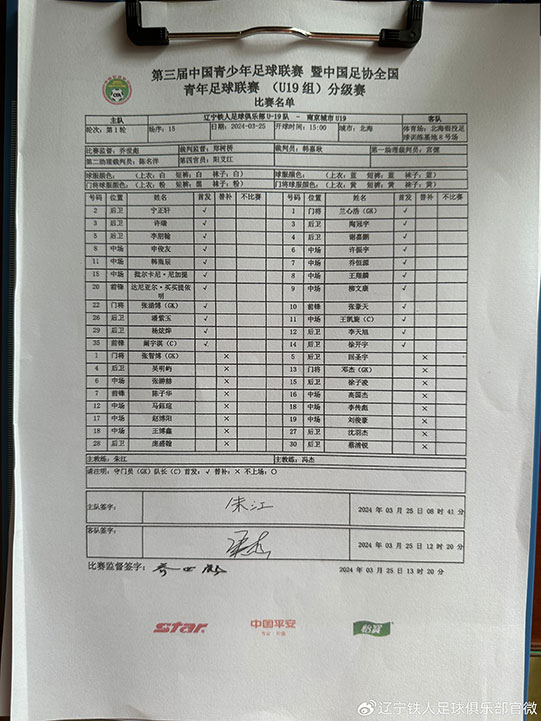 第三届中国青少年足球联赛 暨中国足协全国
青年足球联赛 （U19 组）分级赛
比赛名单
主队 辽宁铁人足球俱乐部U-19队 - 南京城市U19 客队
轮次：第1轮 场序：15 日期：2024-03-25 开球时间：15:00 城市：北海 体育场：北海银投足球训练基地8号场
比赛监督：乔世彪 裁判监督：郑树祷 裁判员：韩嘉敕 第一助理裁判员：宫健
第二助理裁判员：陈名洋 第四官员：阳义江
球服颜色： （上衣：白 短裤：白 袜子：白） 球服颜色： （上衣：蓝 短裤：蓝 袜子：蓝）
门将球服颜色： （上衣：粉 短裤：黑 袜子：粉） 门将球服颜色： （上衣：黄 短裤：黄 袜子：黄）
号码 位置 姓名 首发 替补 不比赛 号码 位置 姓名 首发 替补 不比赛
2 后卫 宁正轩 √ 1 门将 兰心浩（GK） √
3 后卫 许璇 √ 3 后卫 陶冠宇 √
5 后卫 李朋翰 √ 4 后卫 谢嘉鹏 √
8 中场 李俊友 √ 6 中场 许振宇 √
11 中场 韩雨辰 √ 7 中场 乔恒源 √
15 中场 批尔卡尼·尼加提 √ 8 中场 王翔麟 √
20 前锋 达尼亚尔·买买提依明 √ 9 中场 柳文康 √
22 门将 张涵博（GK） √ 10 前锋 张豪天 √
26 后卫 潘紫玉 √ 11 中场 王凯旋（C） √
29 后卫 杨炫烨 √ 12 后卫 李天旭 √
35 前锋 阚宇淇（C） √ 14 后卫 徐开宇 √
1 门将 张智博（GK） × 5 后卫 田圣宇 ×
4 后卫 吴明屿 × 13 门将 邓杰（GK） ×
6 中场 张翀赫 × 15 后卫 徐子凌 ×
7 前锋 陈子华 × 16 中场 高国杰 ×
12 中场 马钰瑄 × 18 中场 李传彪 ×
17 中场 赵博阳 × 19 中场 刘俊豪 ×
18 中场 王博鑫 × 27 后卫 沈羽杰 ×
28 后卫 庞盛翰 × 30 后卫 蔡清锐 ×
主教练：朱江 主教练：冯杰
请注明：守门员（GK）队长（C）首发：√ 替补：× 不上场：○
主队签字： 朱江 2024 年 03 月 25 日 08 时 41 分
客队签字： 2024 年 03 月 25 日 12 时 20 分
比赛监督签字： 2024 年 03 月 25 日 13 时 20 分
star. 中国平安 怡宝
专业·价值
@辽宁铁人足球俱乐部官微